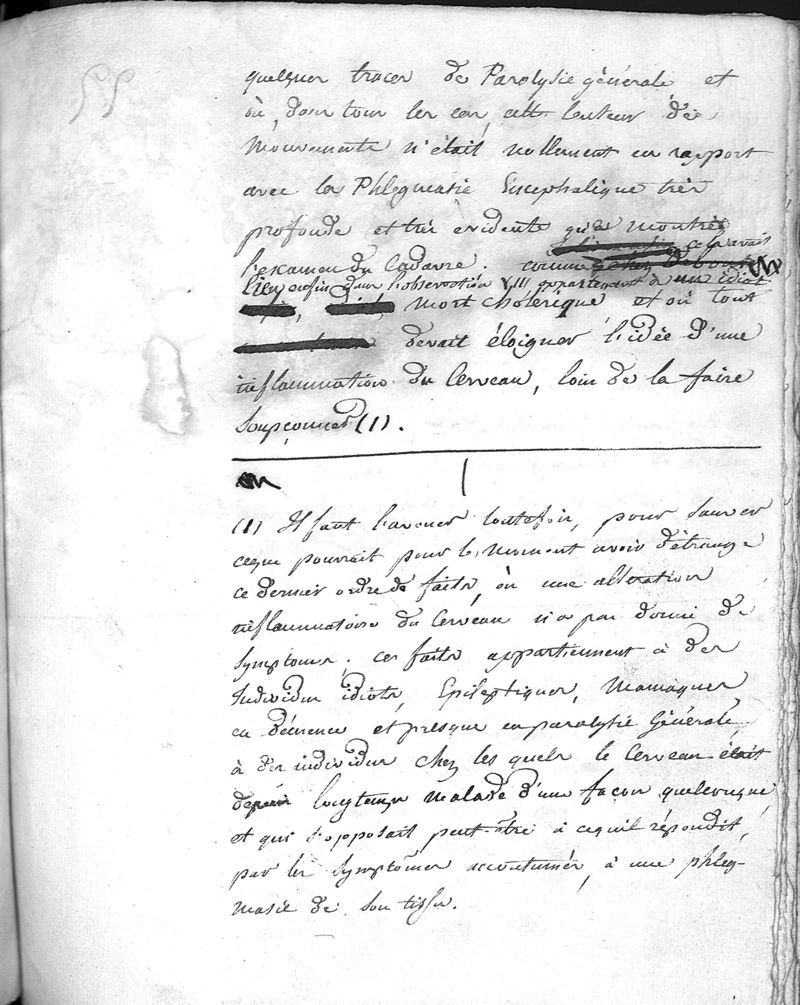 55
quelques traces de Paralysie générale et
où, dans tous les cas, cette lenteur de
Mouvements n'était nullement en rapport
avec la Phlegmasie Encéphalique très
profonde et très evidente qu'a montrée
l'examen du Cadavre, comme cela avait
lieu enfin dans l'observation VIII appartenant à un idiot
mort cholérique et où tout
devait éloigner l'idée d'une
inflammation du Cerveau, loin de la faire
Soupçonner (1).
(1) Il faut l'avouer toutefois, pour sauver
ceque pourrait pour le Moment avoir d'étrange
ce dernier ordre de faits, où une alteration
inflammatoire du Cerveau n'a pas donné de
Symptomes; ces faits appartiennent à des
Individus idiots, Epileptiques, Maniaques,
en démence et presque en paralysie Générale,
à des individus chez les quels le Cerveau était
depuis longtemps Malade d'une façon quelconque,
et qui s'opposait peut-être à cequil répondit,
par les Symptômes accoutumés, à une phleg-
masie de son tissu.